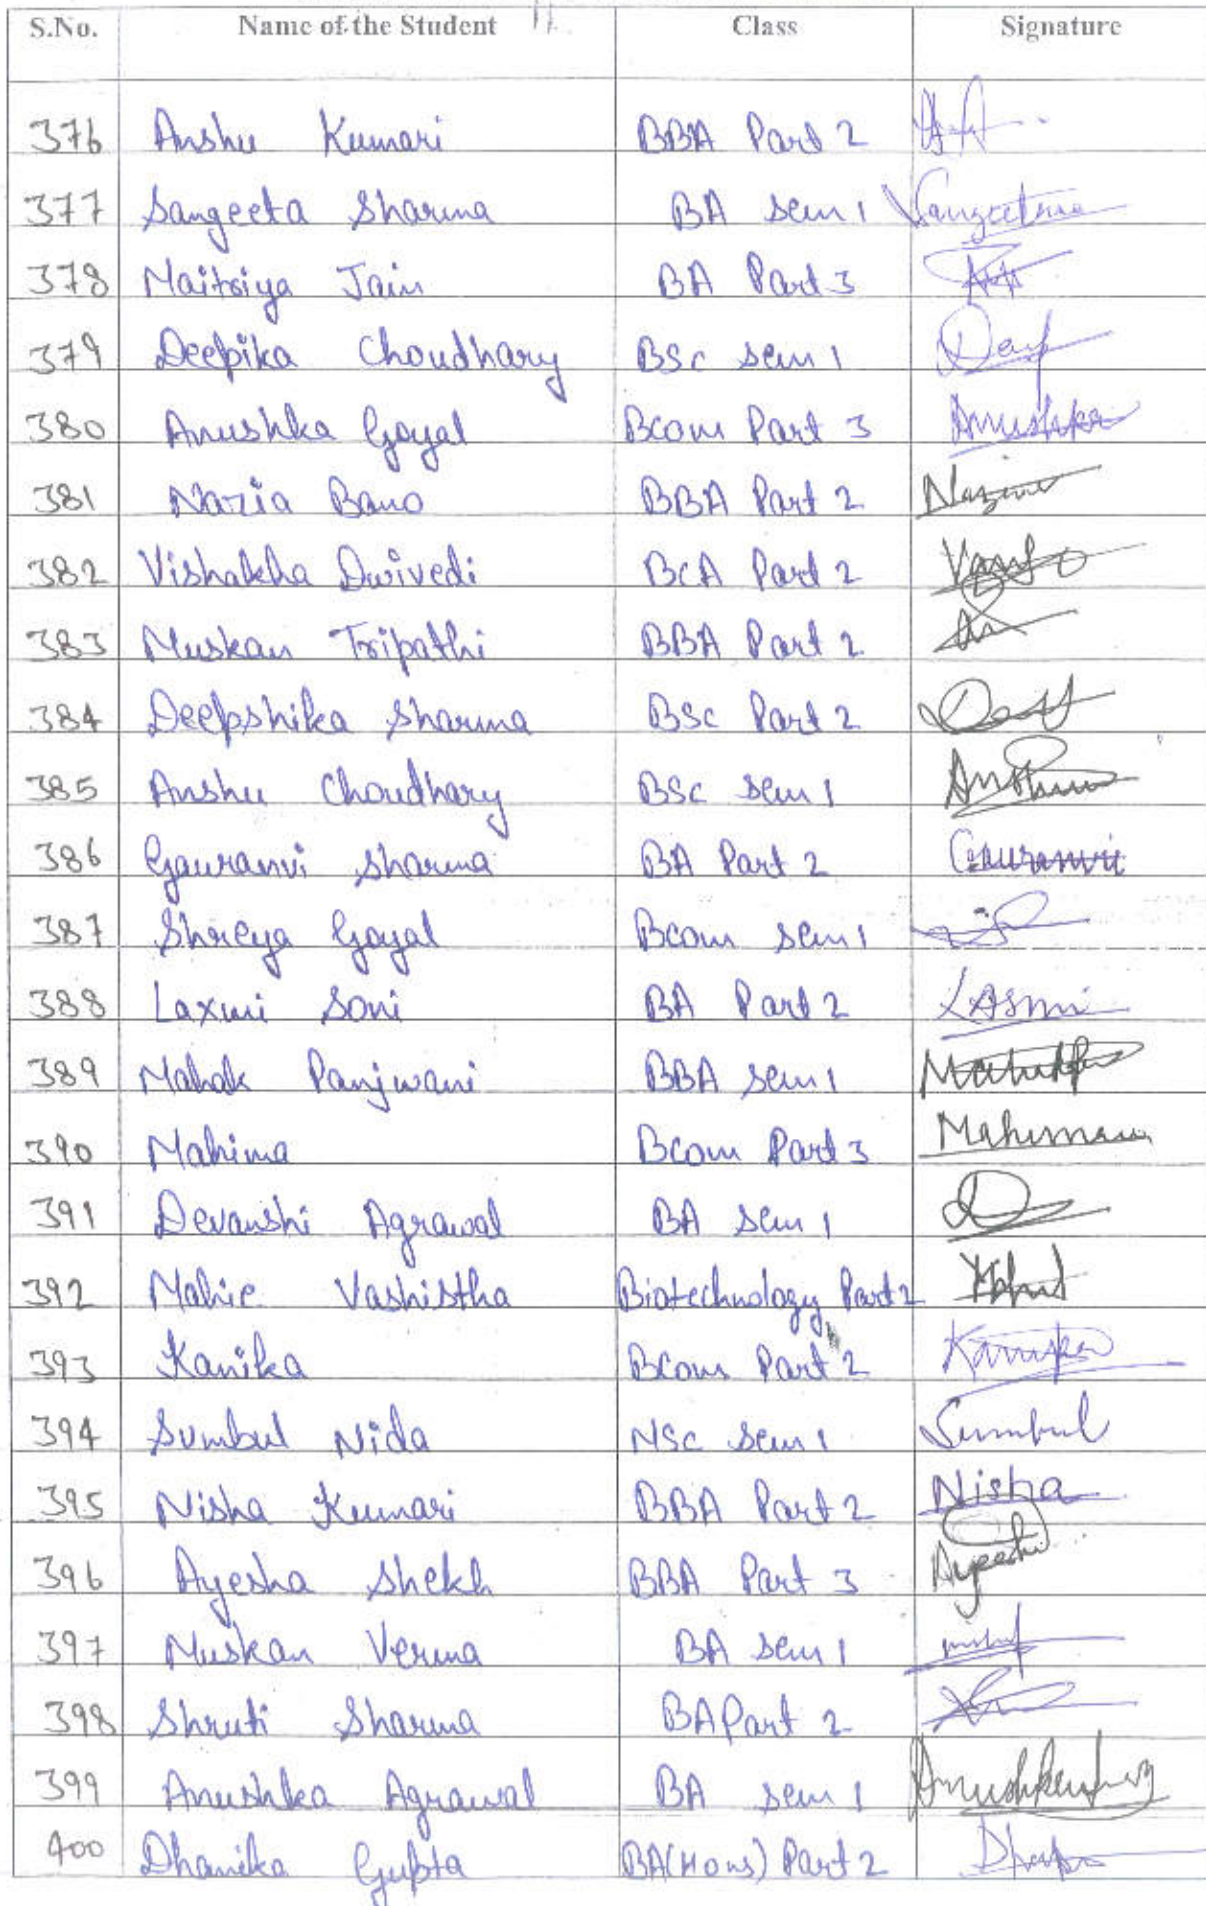 S.No. Name of the Student Class Signature
376 Anshu Kumari BBA Part 2
377 Sangeeta Sharma BA Sem 1
378 Maitriya Jain BA Part 3
379 Deepika Choudhary BSc Sem 1
380 Anushka Goyal Bcom Part 3 Anushka
381 Nazia Bano BBA Part 2
382 Vishakha Dwivedi BCA Part 2
383 Muskan Tripathi BBA Part 2
384 Deepshika Sharma BSc Part 2
385 Anshu Choudhary BSc Sem 1
386 Gauranvi Sharma BA Part 2 Gauranvi
387 Shreya Goyal Bcom Sem 1
388 Laxmi Soni BA Part 2
389 Mahak Panjwani BBA Sem 1
390 Mahima Bcom Part 3
391 Devanshi Agrawal BA Sem 1
392 Mahie Vashistha Biotechnology Part 2
393 Kanika Bcom Part 2
394 Sumbul Nida MSc Sem 1 Sumbul
395 Nisha Kumari BBA Part 2 Nisha
396 Ayesha Shekh BBA Part 3
397 Muskan Verma BA Sem 1
398 Shruti Sharma BA Part 2
399 Anushka Agrawal BA Sem 1
400 Dhanika Gupta BA(Hons) Part 2